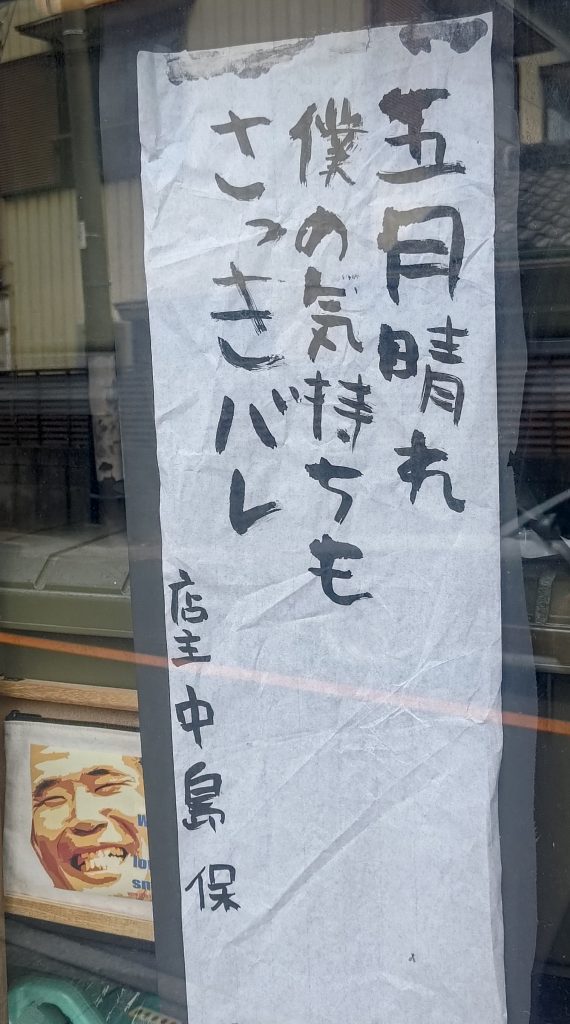 五月晴れ
僕の気持ちも
さっきバレ
店主 中島 保